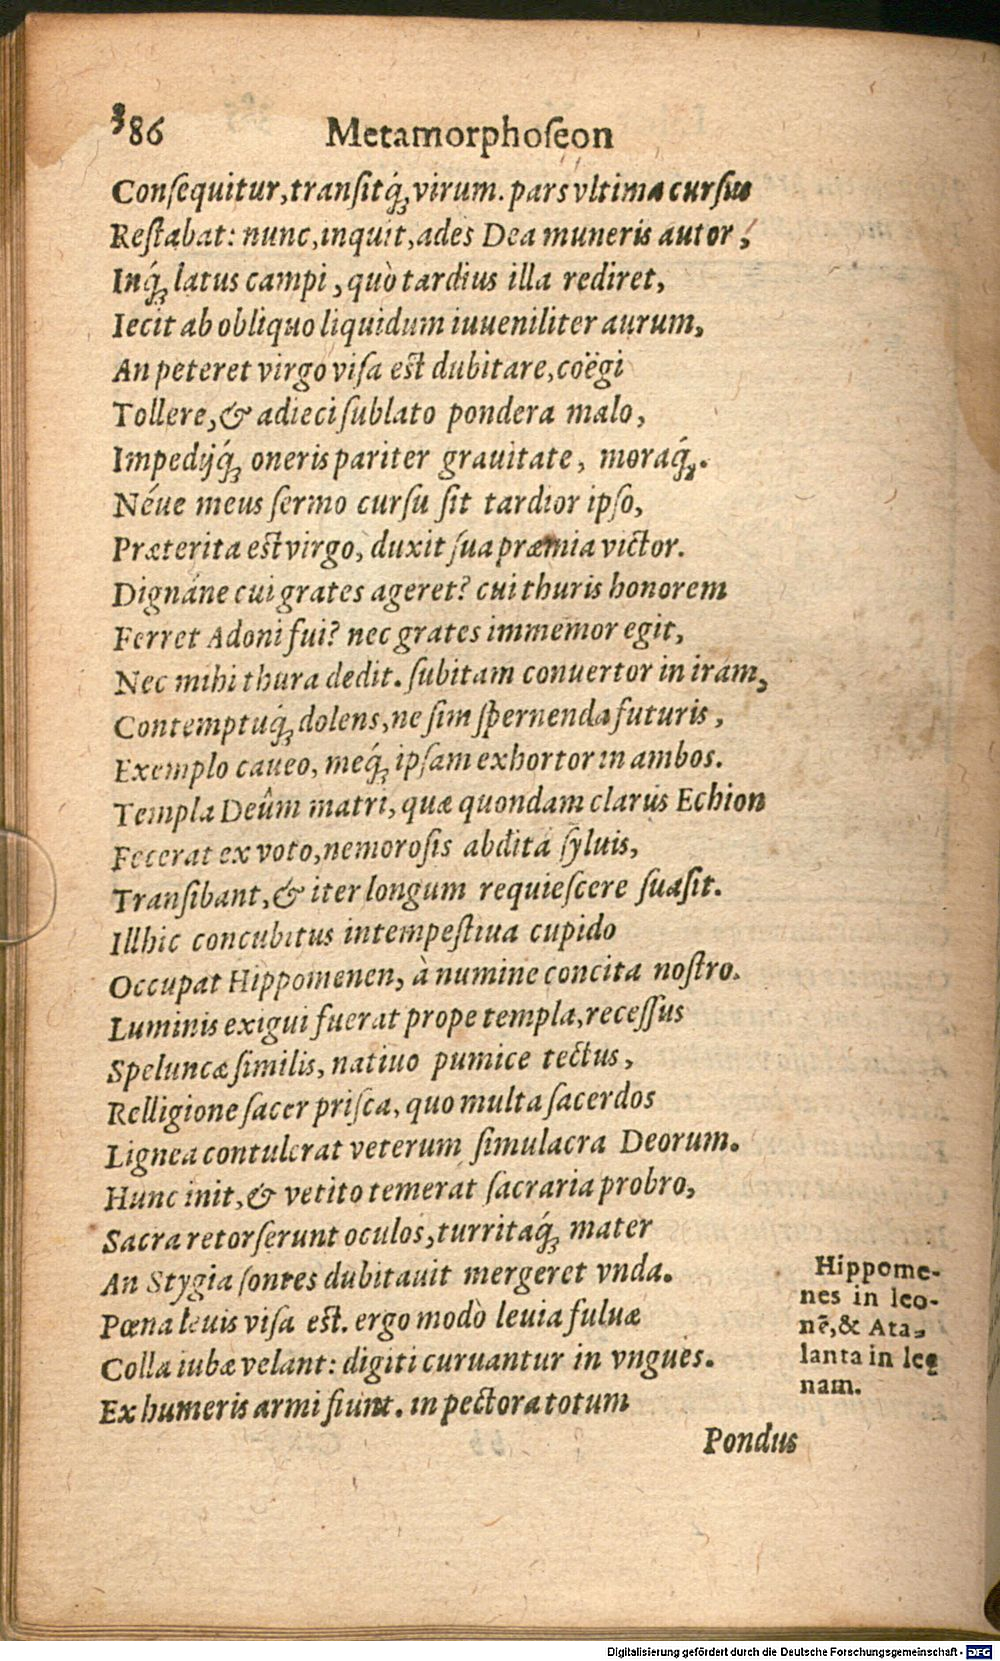 386 Metamorphoſeon
Conſequitur, tranſitq́ꝫ virum. pars vltima curſus
Reſtabat: nunc, inquit, ades Dea muneris autor,
Inq́ꝫ latus campi, quò tardius illa rediret,
Iecit ab obliquo liquidum iuueniliter aurum,
An peteret virgo viſa eſt dubitare, coëgi
Tollere, & adieci ſublato pondera malo,
Impedijq́ꝫ oneris pariter grauitate, moraq́ꝫ.
Néue meus ſermo curſu ſit tardior ipſo,
Præterita eſt virgo, duxit ſua præmia victor.
Dignáne cui grates ageret? cui thuris honorem
Ferret Adoni fui? nec grates immemor egit,
Nec mihi thura dedit. ſubitam conuertor in iram,
Contemptuq́ꝫ dolens, ne ſim ſpernenda futuris,
Exemplo caueo, meq́ꝫ ipſam exhortor in ambos.
Templa Deûm matri, quæ quondam clarus Echion
Fecerat ex voto, nemoroſis abdita ſyluis,
Tranſibant, & iter longum requieſcere ſuaſit.
Illhic concubitus intempeſtiua cupido
Occupat Hippomenen, à numine concita noſtro.
Luminis exigui fuerat prope templa, receſſus
Speluncæ ſimilis, natiuo pumice tectus,
Relligione ſacer priſca, quo multa ſacerdos
Lignea contulerat veterum ſimulacra Deorum.
Hunc init, & vetito temerat ſacraria probro,
Sacra retorſerunt oculos, turritaq́ꝫ mater
An Stygia ſontes dubitauit mergeret vnda.
Pœna leuis viſa eſt. ergo modò leuia fuluæ
Colla iubæ velant: digiti curuantur in vngues.
Ex humeris armi fiunt. in pectora totum
Hippome-
nes in leo-
nē, & Ata-
lanta in leę
nam.
Pondus
Digitalisierung gefördert durch die Deutsche Forschungsgemeinschaft - DFG